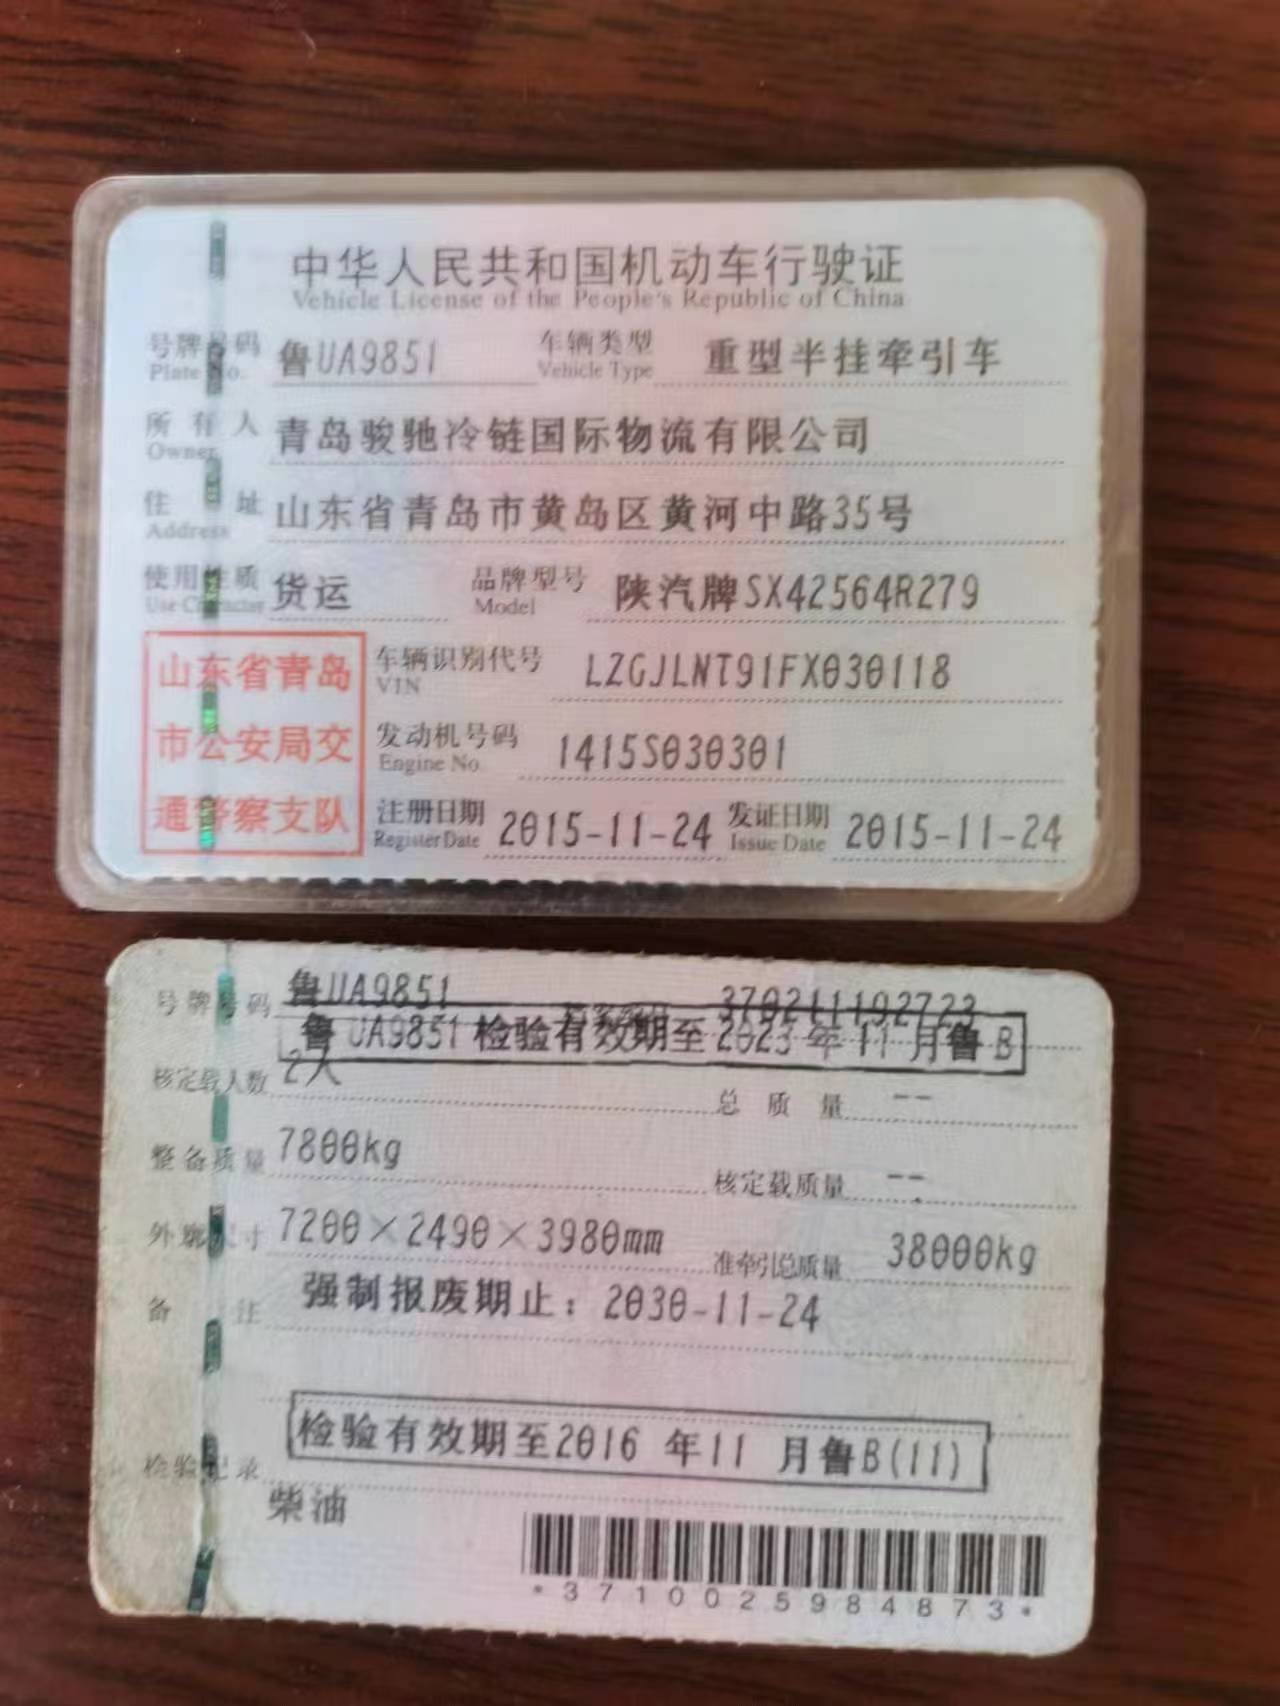 中华人民共和国机动车行驶证
Vehicle License of the People's Republic of China
号牌号码 鲁UA9851 车辆类型 重型半挂牵引车
Plate No. Vehicle Type
所有人 青岛骏驰冷链国际物流有限公司
Owner
住址 山东省青岛市黄岛区黄河中路35号
Address
使用性质 货运 品牌型号 陕汽牌SX42564R279
Use Character Model
山东省青岛
市公安局交
通警察支队
车辆识别代号 LZGJLNT91FX030118
VIN
发动机号码 1415S030301
Engine No.
注册日期 2015-11-24 发证日期 2015-11-24
Register Date Issue Date
号牌号码 鲁UA9851 370211192723
鲁UA9851 检验有效期至2023年11月鲁B
核定载人数 2人 总质量 --
整备质量 7800kg 核定载质量 --
外廓尺寸 7200×2490×3980mm 准牵引总质量 38000kg
备注 强制报废期止：2030-11-24
检验有效期至2016 年11 月鲁B(11)
检验记录
柴油
*3710025984873*